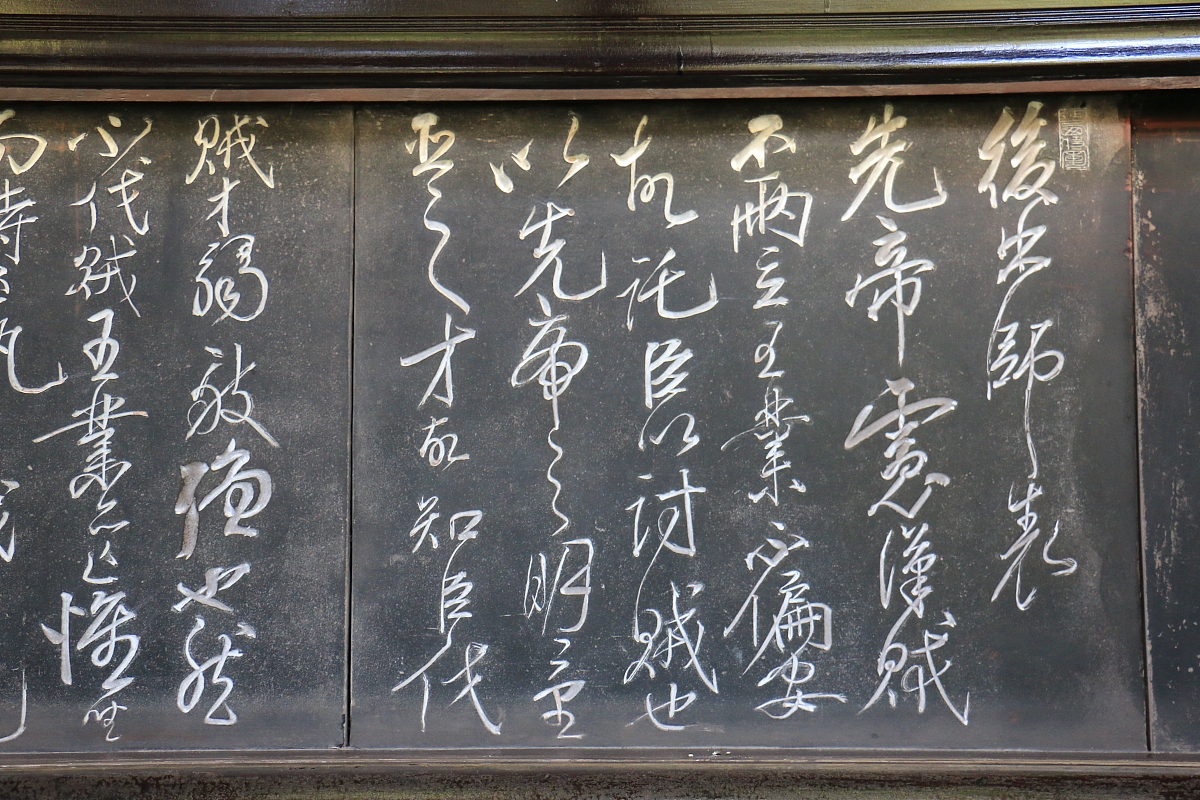 後出師表
先帝慮漢賊
不兩立王業不偏安
故託臣以討賊也
以先帝之明量
臣之才故知臣伐
賊才弱敵強也然
不伐賊王業亦亡惟坐
而待亡孰